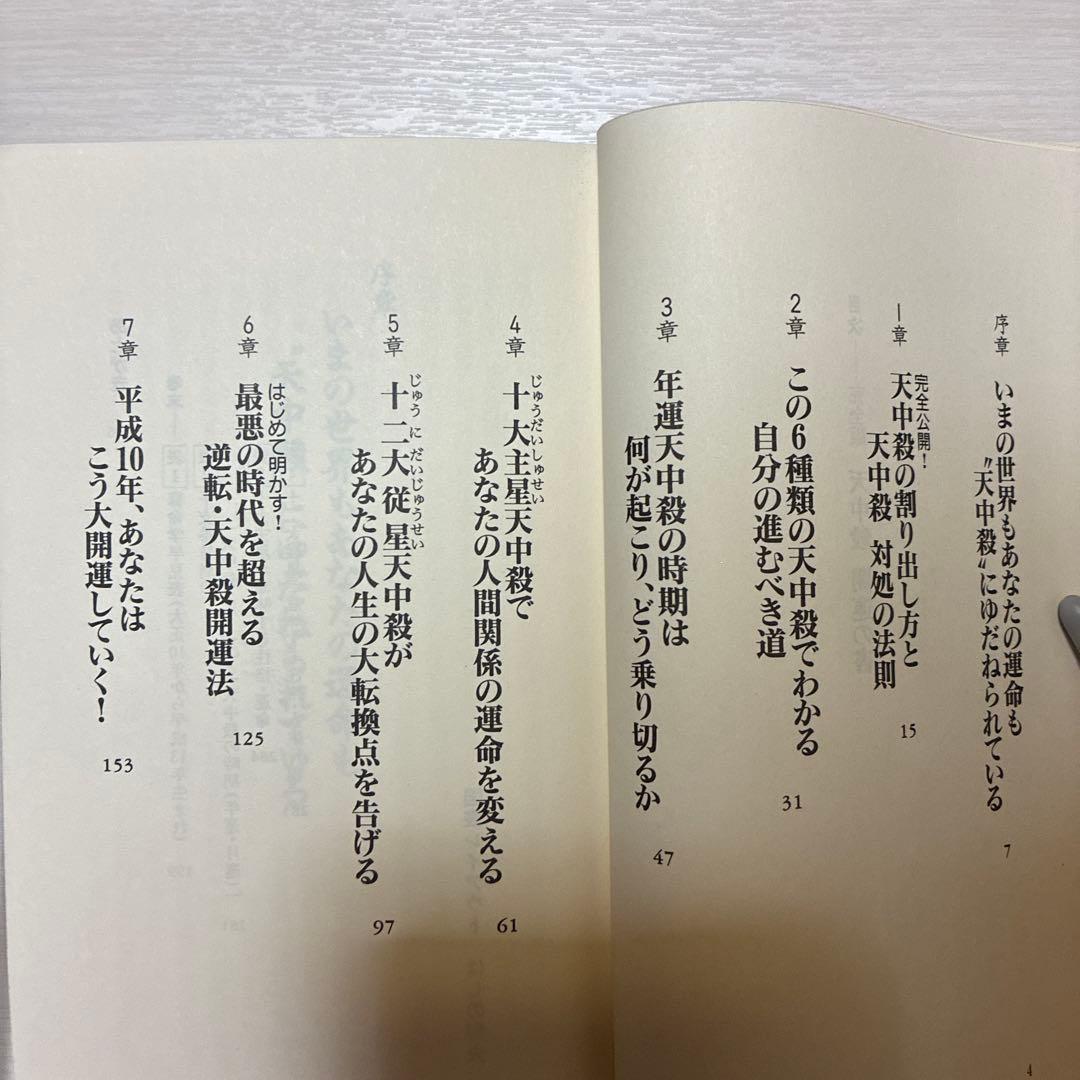 序章
いまの世界もあなたの運命も
〝天中殺〟にゆだねられている
7
1章
完全公開!
天中殺の割り出し方と
天中殺 対処の法則
15
2章
この6種類の天中殺でわかる
自分の進むべき道
31
3章
年運天中殺の時期は
何が起こり、どう乗り切るか
47
4
4章
じゅうだいしゅせい
十大主星天中殺で
あなたの人間関係の運命を変える
61
5章
じゅうにだいじゅうせい
十二大従星天中殺が
あなたの人生の大転換点を告げる
97
6章
はじめて明かす!
最悪の時代を超える
逆転・天中殺開運法
125
7章
平成10年、あなたは
こう大開運していく!
153